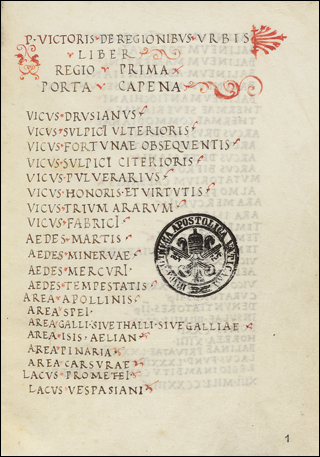 P·VICTORIS·DE REGIONIBVS·VRBIS
LIBER
REGIO PRIMA
PORTA CAPENA
VICVS·DRVSIANVS
VICVS·SVLPICI VLTERIORIS
VICVS·FORTVNAE OBSEQVENTIS
VICVS·SVLPICI CITERIORIS
VICVS·PVLVERARIVS
VICVS·HONORIS·ET VIRTVTIS
VICVS·TRIVM ARARVM
VICVS·FABRICI
AEDES·MARTIS
AEDES·MINERVAE
AEDES·MERCVRI
AEDES·TEMPESTATIS
AREA·APOLLINIS
AREA·SPEI
AREA·GALLI·SIVE THALLI·SIVE GALLIAE
AREA·ISIS·AELIAN
AREA·PINARIA
AREA·CARSVRAE
LACVS·PROMETHEI
LACVS·VESPASIANI
APOSTOLICA VATICANA
1